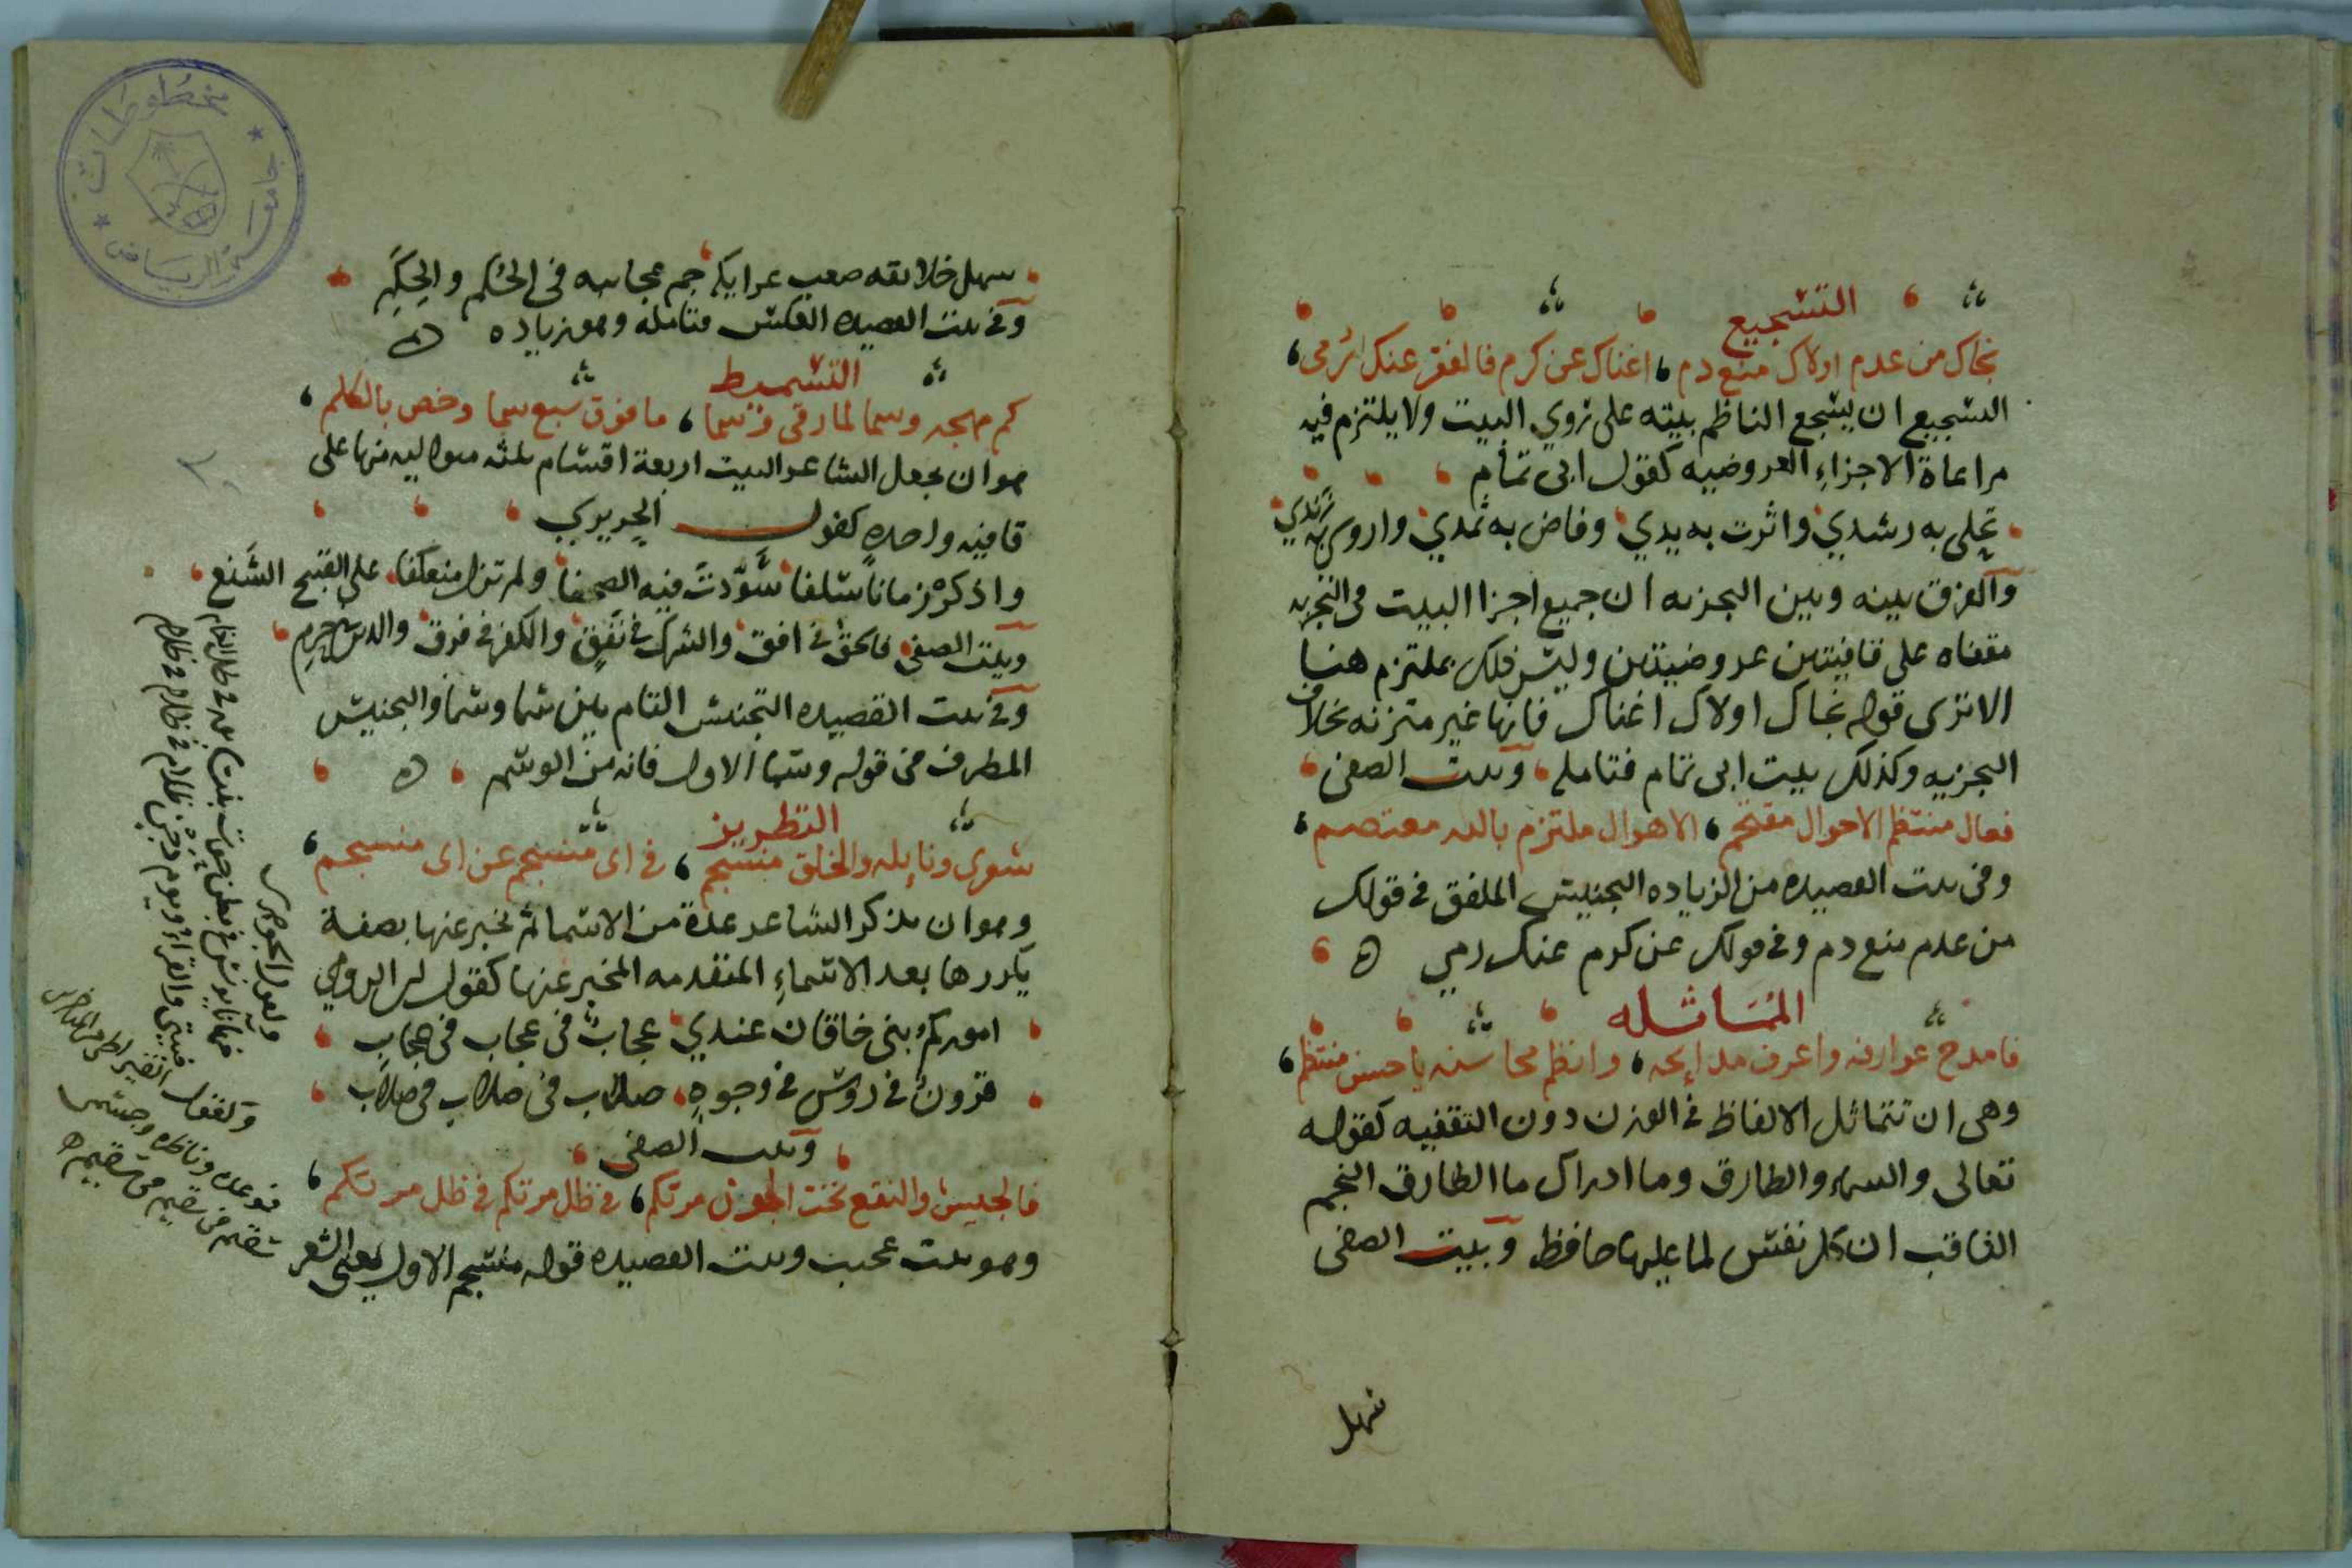 التسجيع
نجاك من عدم اولاك منع دم اغناك عن كرم فالفقر عنك رمى
التسجيع ان يسجع الناظم بيته على روي البيت ولا يلتزم فيه
مراعاة الاجزاء العروضيه كقول ابى تمام
تجلى به رشدي واثرت به يدي وفاض به ثمدي واروى به زندي
والفرق بينه وبين التجزيه ان جميع اجزا البيت فى التجزيه
مقفاه على قافيتين عروضيتين وليس ذلك بملتزم هنا
الا ترى قوله نجاك اولاك اغناك فانها غير متزنه بخلاف
التجزيه وكذلك بيت ابى تمام فتامله وبيت الصفى
فعال منتظم الاحوال مقتحم الاهوال ملتزم بالله معتصم
وفى بيت القصيده من الزياده التجنيس الملفق فى قولك
من عدم منع دم وفى قولك عن كرم عنك رمي ه
المماثله
فامدح عوارفه واعرف مدايحه وانظم محاسنه يا حسن منتظم
وهى ان تتماثل الالفاظ فى الوزن دون التقفيه كقوله
تعالى والسماء والطارق وما ادراك ما الطارق النجم
الثاقب ان كل نفس لما عليها حافظ وبيت الصفى
سهل
سهل خلائقه صعب عرايكه جم عجائبه فى الحكم والحكم
وفى بيت القصيده العكس فتامله وهو زياده ه
التسميط
كم مهجه وسما لما رقى وسما ما فوق سبع سما وخص بالكلم
هو ان يجعل الشاعر البيت اربعة اقسام ثلثه متواليه منها على
قافيه واحده كقول الحريري
واذكر زمانا سلفا سودت فيه الصحفا ولم تزل منعكفا على القبيح الشنع
وبيت الصفى فالحق فى افق والشرك فى نفق والكفر فى فرق والدين فى حرم
وفى بيت القصيده التجنيس التام بين سما وسما والتجنيس
المطرف فى قوله وسما الاول فانه من الوسم ه
التطريز
شعرى ونايله والخلق منسجم فى اى منسجم عن اى منسجم
وهو ان يذكر الشاعر عدة من الاسما ثم يخبر عنها بصفة
يكررها بعد الاسماء المتقدمه المخبر عنها كقول ابن الرومي
اموركم بنى خاقان عندي عجاب فى عجاب فى عجاب
قرون فى روس فى وجوه صلاب فى صلاب فى صلاب
وبيت الصفى
فالجيش والنقع تحت الجون مرتكم فى ظل مرتكم فى ظل مرتكم
وهو بيت عجيب وبيت القصيده قوله منسجم الاول يعنى الشعر
مخطوطات
جامعة الرياض